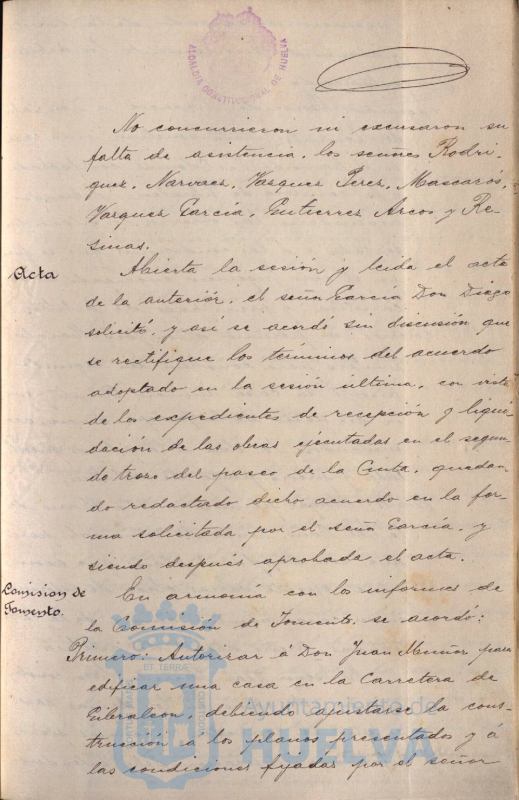 ALCALDÍA CONSTITUCIONAL DE HUELVA
No concurrieron ni excusaron su
falta de asistencia, los señores Rodri-
guez, Narvaez, Vazquez Perez, Mascarós,
Vazquez García, Gutierrez Arcos y Re-
sinas.
Acta
Abierta la sesión y leida el acta
de la anterior, el señor García Don Diego
solicitó, y así se acordó sin discusión que
se rectifique los términos del acuerdo
adoptado en la sesión última, con vista
de los expedientes de recepción y liqui-
dación de las obras ejecutadas en el segun-
do trozo del paseo de la Cinta, quedan-
do redactado dicho acuerdo en la for-
ma solicitada por el señor García, y
siendo después aprobada el acta.
Comision de
Fomento.
En armonía con los informes de
la Comisión de Fomento, se acordó:
Primero: Autorizar á Don Juan Muñoz para
edificar una casa en la Carretera de
Gibraleon, debiendo ajustarse la cons-
trucción á los planos presentados y á
las condiciones fijadas por el señor
ET TERRÆ
Ayuntamiento de
HUELVA